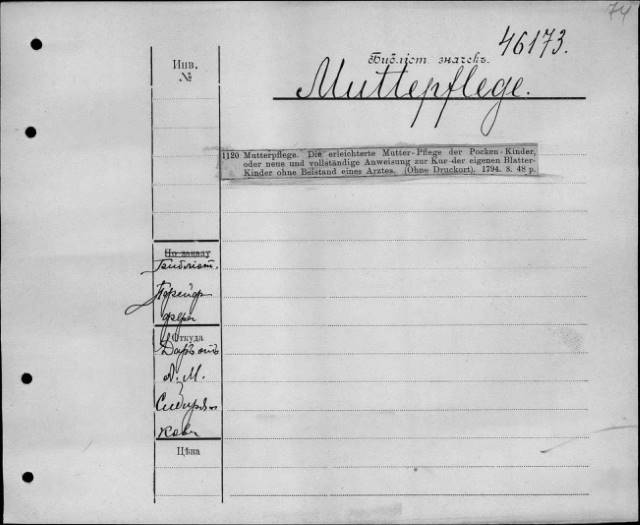 74
46173.
Библіот. значекъ.
Muttepflege.
Инв.
№
1120 Mutterpflege. Die erleichterte Mutter-Pflege der Pocken-Kinder,
oder neue und vollständige Anweisung zur Kur der eigenen Blatter-
Kinder ohne Beistand eines Arztes. (Ohne Druckort). 1794. 8. 48 p.
По каналу
Библіот.
Откуда
Даръ отъ
А. М.
Сибиряко
Цѣна